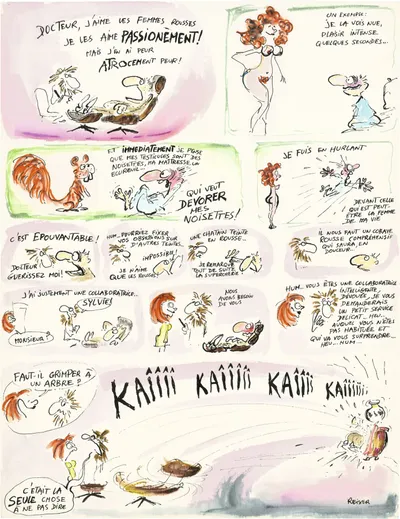 DOCTEUR, J'AIME LES FEMMES ROUSSES
JE LES AIME PASSIONÉMENT!
MAIS J'EN AI PEUR
ATROCEMENT PEUR!
UN EXEMPLE:
JE LA VOIS NUE,
PLAISIR INTENSE
QUELQUES SECONDES...
ET IMMÉDIATEMENT JE PENSE
QUE MES TESTICULES SONT DES
NOISETTES, MA MAÎTRESSE UN
ÉCUREUIL...
QUI VEUT
DÉVORER
MES
NOISETTES!
JE FUIS EN HURLANT
DEVANT CELLE
QUI EST PEUT-
ÊTRE LA FEMME
DE MA VIE
C'EST ÉPOUVANTABLE!
DOCTEUR
GUÉRISSEZ MOI!
HUM.. POURRIEZ FIXER
VOS OBSESSIONS SUR
D'AUTRES TEINTES..
IMPOSSIBLE!
JE N'AIME
QUE LES ROUSSES!
UNE CHATAIN TEINTE
EN ROUSSE...
JE REMARQUE
TOUT DE SUITE
LA SUPERCHERIE
IL NOUS FAUT UN COBAYE
ROUSSE COMPRÉHENSIF
QUI SAURA, EN
DOUCEUR...
J'AI JUSTEMENT UNE COLLABORATRICE..
SYLVIE!
MONSIEUR?
NOUS
AVONS BESOIN
DE VOUS
HUM.. VOUS ÊTES UNE COLLABORATRICE
INTELLIGENTE,
DÉVOUÉE, JE VOUS
DEMANDERAIS
UN PETIT SERVICE
DÉLICAT... HEU...
AUQUEL VOUS N'ÊTES
PAS HABITUÉE ET
QUI VA VOUS SURPRENDRE..
HEU... HUM...
FAUT-IL GRIMPER À
UN ARBRE?
KAÎÎÎÎ KAÎÎÎÎS KAÎÎÎ KAÎÎÎÎÎ
C'ÉTAIT LA
SEULE CHOSE
À NE PAS DIRE
REISER